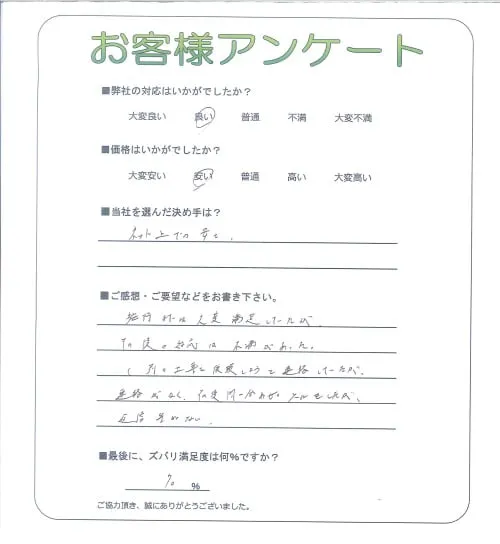 お客様アンケート
■弊社の対応はいかがでしたか？
大変良い 良い 普通 不満 大変不満
■価格はいかがでしたか？
大変安い 安い 普通 高い 大変高い
■当社を選んだ決め手は？
ネット上での安さ。
■ご感想・ご要望などをお書き下さい。
施行 は 大変 満足していたが
その後の対応は 不満があった。
別の工事も依頼しようと連絡していたが、
連絡がなく、何度問い合わせ メールをしたが、
返信 がない。
■最後に、ズバリ満足度は何％ですか？
70 ％
ご協力頂き、誠にありがとうございました。